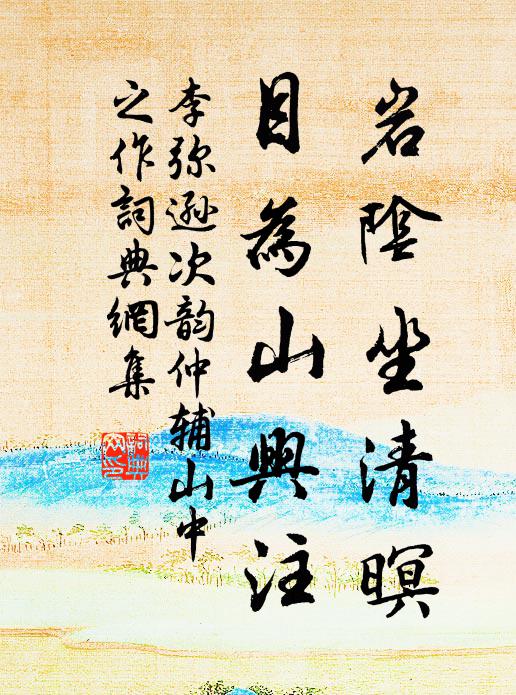 岩陰坐清暝
目為山興注
李弥遜次韵仲辅山中
之作詞典網集